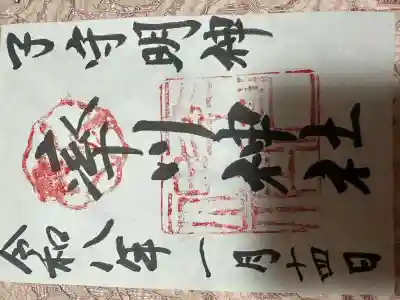 子守明神
率川神社
令和八年一月十四日